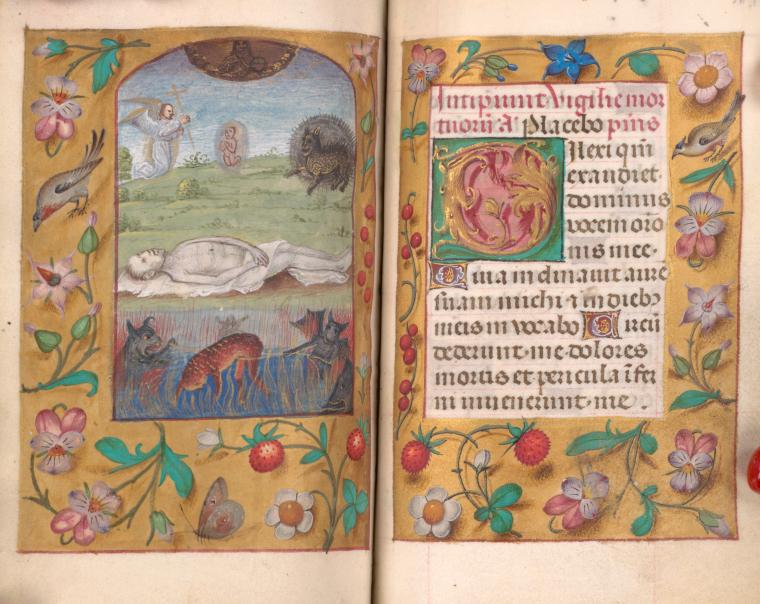 Incipiunt vigilie mor
tuorũ Aⁿ Placebo p̃mus
Ilexi qm̃
exaudiet
dominus
vocem orõ
nis mee.
Quia inclinavit aurē
suam michi ⁊ in dieb9
meis invocabo Circũ
dederunt me dolores
mortis et pericula ĩfer
ni invenerunt me